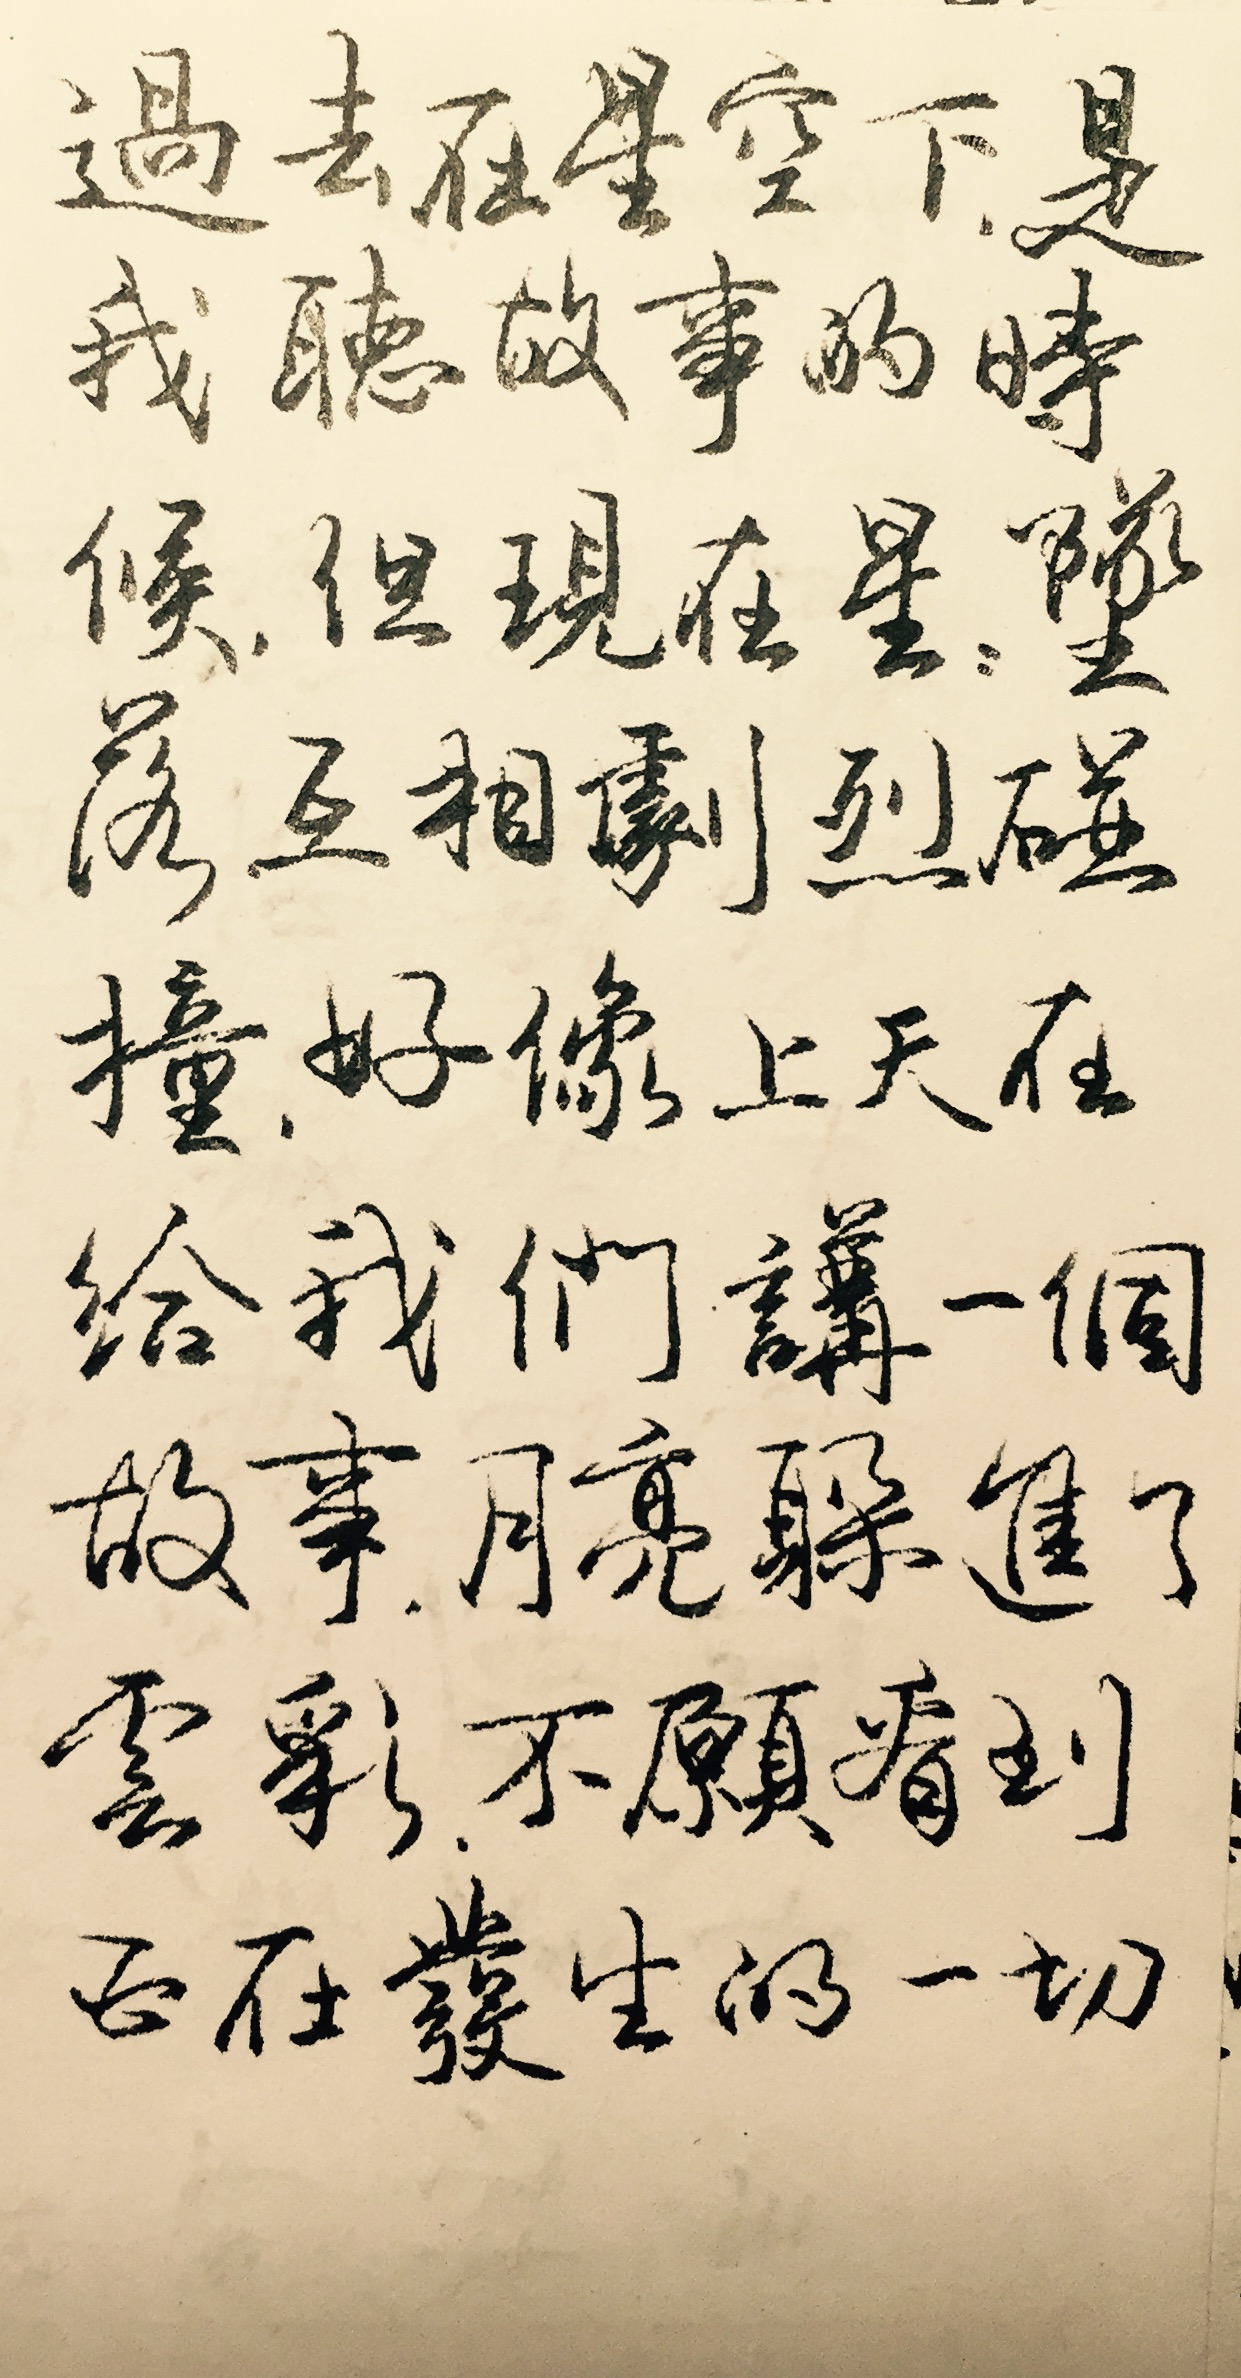 過去在星空下,是
我聽故事的時
候,但現在星:墜
落互相劇烈碰
撞,好像上天在
給我們講一個
故事.月亮躲進了
雲彩.不願看到
正在發生的一切